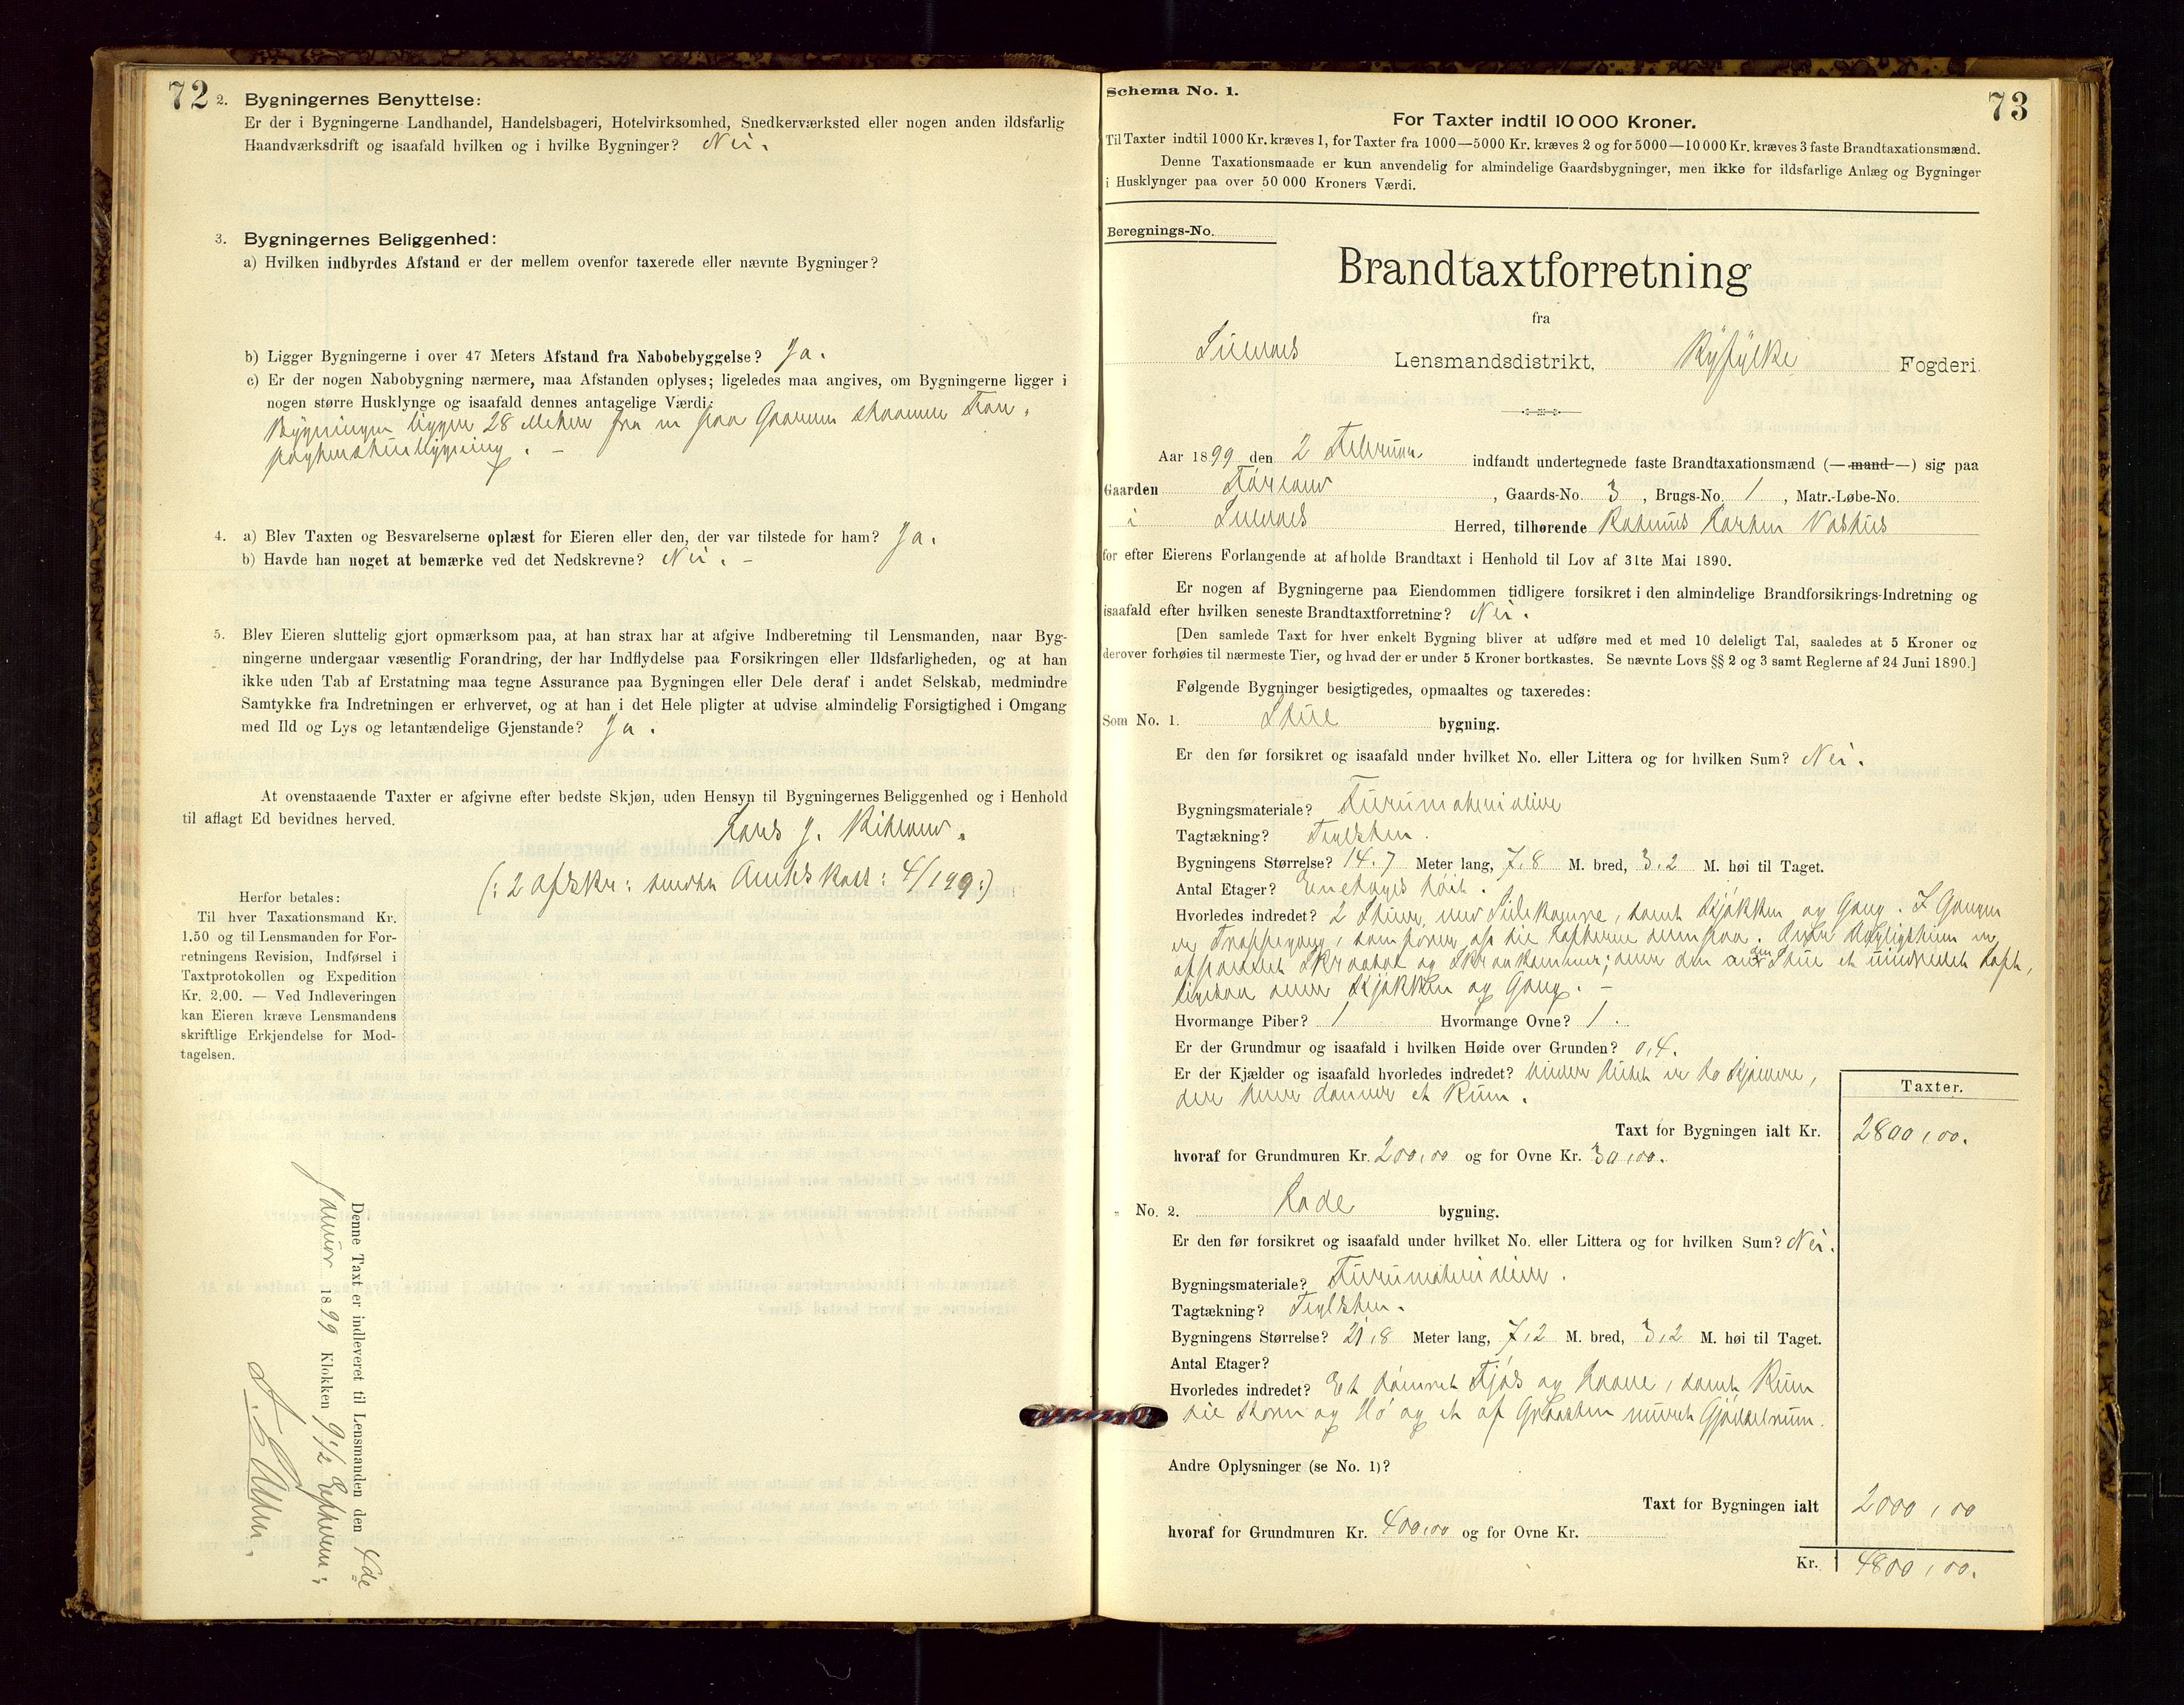 72
2. Bygningernes Benyttelse:
Er der i Bygningerne Landhandel, Handelsbageri, Hotelvirksomhed, Snedkerværksted eller nogen anden ildsfarlig
Haandværksdrift og isaafald hvilken og i hvilke Bygninger? Nei.
3. Bygningernes Beliggenhed:
a) Hvilken indbyrdes Afstand er der mellem ovenfor taxerede eller nævnte Bygninger?
b) Ligger Bygningerne i over 47 Meters Afstand fra Nabobebyggelse? Ja.
c) Er der nogen Nabobygning nærmere, maa Afstanden oplyses; ligeledes maa angives, om Bygningerne ligger i
nogen større Husklynge og isaafald dennes antagelige Værdi:
Bygningen ligger 28 Meter fra en paa Gaarden
4. a) Blev Taxten og Besvarelserne oplæst for Eieren eller den, der var tilstede for ham? Ja.
b) Havde han noget at bemærke ved det Nedskrevne? Nei. –
5. Blev Eieren sluttelig gjort opmærksom paa, at han strax har at afgive Indberetning til Lensmanden, naar Byg-
ningerne undergaar væsentlig Forandring, der har Indflydelse paa Forsikringen eller Ildsfarligheden, og at han
ikke uden Tab af Erstatning maa tegne Assurance paa Bygningen eller Dele deraf i andet Selskab, medmindre
Samtykke fra Indretningen er erhvervet, og at han i det Hele pligter at udvise almindelig Forsigtighed i Omgang
med Ild og Lys og letantændelige Gjenstande? Ja.
At ovenstaaende Taxter er afgivne efter bedste Skjøn, uden Hensyn til Bygningernes Beliggenhed og i Henhold
til aflagt Ed bevidnes herved.
(: 2 Afskr: sendte Amtsk 4/1 99 :)
Herfor betales:
Til hver Taxationsmand Kr.
1.50 og til Lensmanden for For-
retningens Revision, Indførsel i
Taxtprotokollen og Expedition
Kr. 2.00. — Ved Indleveringen
kan Eieren kræve Lensmandens
skriftlige Erkjendelse for Mod-
tagelsen.
Denne Taxt er indleveret til Lensmanden den 4de
Januar 1899 Klokken 9 1/2 Efterm:
73
Schema No. 1.
For Taxter indtil 10 000 Kroner.
Til Taxter indtil 1000 Kr. kræves 1, for Taxter fra 1000—5000 Kr. kræves 2 og for 5000—10 000 Kr. kræves 3 faste Brandtaxationsmænd.
Denne Taxationsmaade er kun anvendelig for almindelige Gaardsbygninger, men ikke for ildsfarlige Anlæg og Bygninger
i Husklynger paa over 50 000 Kroners Værdi.
Beregnings-No.
Brandtaxtforretning
fra
Lensmandsdistrikt, Ryfylke Fogderi.
Aar 1899 den 2 Februar indfandt undertegnede faste Brandtaxationsmænd (—mand—) sig paa
Gaarden Førland, Gaards-No. 3, Brugs-No. 1, Matr.-Løbe-No.
i Herred, tilhørende Rasmus Larsen
for efter Eierens Forlangende at afholde Brandtaxt i Henhold til Lov af 31te Mai 1890.
Er nogen af Bygningerne paa Eiendommen tidligere forsikret i den almindelige Brandforsikrings-Indretning og
isaafald efter hvilken seneste Brandtaxtforretning? Nei.
[Den samlede Taxt for hver enkelt Bygning bliver at udføre med et med 10 deleligt Tal, saaledes at 5 Kroner og
derover forhøies til nærmeste Tier, og hvad der er under 5 Kroner bortkastes. Se nævnte Lovs §§ 2 og 3 samt Reglerne af 24 Juni 1890.]
Følgende Bygninger besigtigedes, opmaaltes og taxeredes:
Som No. 1. Stue bygning.
Er den før forsikret og isaafald under hvilket No. eller Littera og for hvilken Sum? Nei.
Bygningsmateriale? Furumaterialier
Tagtækning? Teglsten.
Bygningens Størrelse? 14.7 Meter lang, 7,8 M. bred, 3,2 M. høi til Taget.
Antal Etager? Enetages høit.
Hvorledes indredet? 2 Stuer med Sidekamre, samt Kjøkken og Gang. I Gangen
er Trappegang, som fører op til Lofterne ovenpaa.
afpanelet og ; over den anden Stue et uindredet Loft,
ligesaa over Kjøkken og Gang. –
Hvormange Piber? 1 Hvormange Ovne? 1.
Er der Grundmur og isaafald i hvilken Høide over Grunden? 0,4.
Er der Kjælder og isaafald hvorledes indredet? Under Huset er to Kjældere,
der hver danner et Rum.
Taxter.
Taxt for Bygningen ialt Kr. 2800,00.
hvoraf for Grundmuren Kr. 200,00 og for Ovne Kr. 30,00.
" No. 2. Lade bygning.
Er den før forsikret og isaafald under hvilket No. eller Littera og for hvilken Sum? Nei.
Bygningsmateriale? Furumaterialier.
Tagtækning? Teglsten.
Bygningens Størrelse? 21,8 Meter lang, 7,2 M. bred, 3,2 M. høi til Taget.
Antal Etager?
Hvorledes indredet? Et tømret Fjøs og Laave, samt Rum
til Korn og Hø og et af Graasten muret Gjødselrum.
Andre Oplysninger (se No. 1)?
Taxt for Bygningen ialt 2000,00
hvoraf for Grundmuren Kr. 400,00 og for Ovne Kr.
Kr. 4800,00.